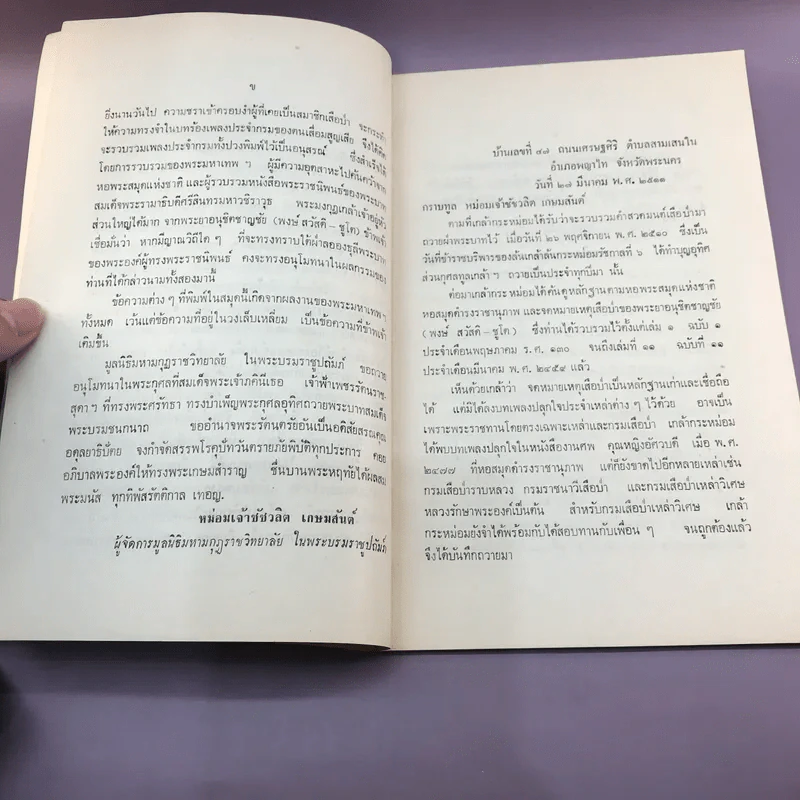 ข
ยิ่งนานวันไป ความชราเข้าครอบงำผู้ที่เคยเป็นสมาชิกเสือป่า จะกระทำ
ให้ความทรงจำในบทร้องเพลงประจำกรมของตนเลื่อมสูญเสีย จึงได้คิด
จะรวบรวมเพลงประจำกรมทั้งปวงพิมพ์ไว้เป็นอนุสรณ์ ซึ่งสำเร็จได้
โดยการรวบรวมของพระมหาเทพ ฯ ผู้มีความอุตสาหะไปค้นคว้าจาก
หอพระสมุดแห่งชาติ และผู้รวบรวมหนังสือพระราชนิพนธ์ของพระบาท
สมเด็จพระรามาธิบดีศรีสินทรมหาวชิราวุธ พระมงกุฎเกล้าเจ้าอยู่หัว
ส่วนใหญ่ได้มาก จากพระยาอนุชิตชาญชัย (พงษ์ สวัสดิ-ชูโต) ข้าพเจ้า
เชื่อมั่นว่า หากมีญาณวิถีใด ๆ ที่จะทรงทราบใต้ฝ่าลอองธุลีพระบาท
ของพระองค์ผู้ทรงพระราชนิพนธ์ คงจะทรงอนุโมทนาในผลกรรมของ
ท่านที่ได้กล่าวนามทั้งสองมานี้
ข้อความต่าง ๆ ที่พิมพ์ในสมุดนี้เกิดจากผลงานของพระมหาเทพ ฯ
ทั้งหมด เว้นแต่ข้อความที่อยู่ในวงเล็บเหลี่ยม เป็นข้อความที่ข้าพเจ้า
เติมขึ้น
มูลนิธิมหามกุฏราชวิทยาลัย ในพระบรมราชูปถัมภ์ ขอถวาย
อนุโมทนาในพระกุศลที่สมเด็จพระเจ้าภคินีเธอ เจ้าฟ้าเพชรรัตนราช-
สุดา ฯ ที่ทรงพระศรัทธา ทรงบำเพ็ญพระกุศลอุทิศถวายพระบาทสมเด็จ
พระบรมชนกนาถ ขออำนาจพระรัตนตรัยอันเป็นอดิสัยสรณคุณ
อดุลยาธิบัตย จงกำจัดสรรพโรคุปัทวันตรายภัยพิบัติทุกประการ คอย
อภิบาลพระองค์ให้ทรงพระเกษมสำราญ ชื่นบานพระหฤทัยได้ผลสม
พระมนัส ทุกทิพัสรัตติกาล เทอญ.
หม่อมเจ้าชัชวลิต เกษมสันต์
ผู้จัดการมูลนิธิมหามกุฏราชวิทยาลัย ในพระบรมราชูปถัมภ์
บ้านเลขที่ ๔๗ ถนนเศรษฐศิริ ตำบลสามเสนใน
อำเภอพญาไท จังหวัดพระนคร
วันที่ ๒๗ มีนาคม พ.ศ. ๒๕๑๑
กราบทูล หม่อมเจ้าชัชวลิต เกษมสันต์
ตามที่เกล้ากระหม่อมได้รับว่าจะรวบรวมคำสวดมนต์เสือป่ามา
ถวายฝ่าพระบาทไว้ เมื่อวันที่ ๒๖ พฤศจิกายน พ.ศ. ๒๕๑๐ ซึ่งเป็น
วันที่ข้าราชบริพารของล้นเกล้าล้นกระหม่อมรัชกาลที่ ๖ ได้ทำบุญอุทิศ
ส่วนกุศลทูลเกล้า ฯ ถวายเป็นประจำทุกปีมา นั้น
ต่อมาเกล้ากระหม่อมได้ค้นดูหลักฐานตามหอพระสมุดแห่งชาติ
หอสมุดดำรงราชานุภาพ และจดหมายเหตุเสือป่าของพระยาอนุชิตชาญชัย
(พงษ์ สวัสดิ-ชูโต) ซึ่งท่านได้รวบรวมไว้ตั้งแต่เล่ม ๑ ฉบับ ๑
ประจำเดือนพฤษภาคม ร.ศ. ๑๓๐ จนถึงเล่มที่ ๑๑ ฉบับที่ ๑๑
ประจำเดือนมีนาคม พ.ศ. ๒๔๕๙ แล้ว
เห็นด้วยเกล้าว่า จดหมายเหตุเสือป่าเป็นหลักฐานเก่าและเชื่อถือ
ได้ แต่มิได้ลงบทเพลงปลุกใจประจำเหล่าต่าง ๆ ไว้ด้วย อาจเป็น
เพราะพระราชทานโดยตรงเฉพาะเหล่าและกรมเสือป่า เกล้ากระหม่อม
ได้พบบทเพลงปลุกใจในหนังสืองานศพ คุณหญิงอัศวบดี เมื่อ พ.ศ.
๒๔๗๗ ที่หอสมุดดำรงราชานุภาพ แต่ก็ยังขาดไปอีกหลายเหล่าเช่น
กรมเสือป่าราบหลวง กรมราชนาวีเสือป่า และกรมเสือป่าเหล่าวิเศษ
หลวงรักษาพระองค์เป็นต้น สำหรับกรมเสือป่าเหล่าวิเศษ เกล้า
กระหม่อมยังจำได้พร้อมกับได้สอบทานกับเพื่อน ๆ จนถูกต้องแล้ว
จึงได้บันทึกถวายมา